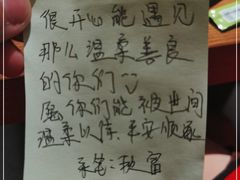 很开心能遇见
那么温柔善良
的你们
愿你们能被世间
温柔以待、平安顺遂